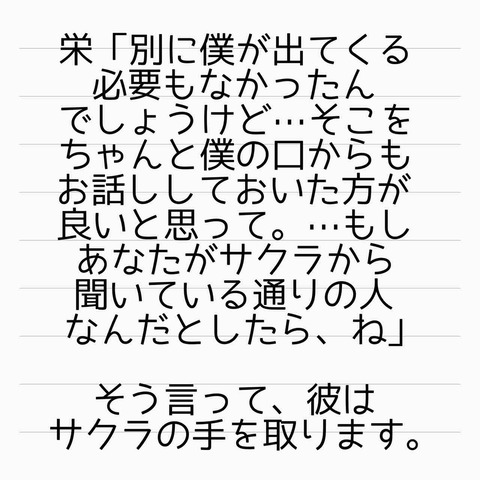 栄「別に僕が出てくる
必要もなかったん
でしょうけど…そこを
ちゃんと僕の口からも
お話ししておいた方が
良いと思って。…もし
あなたがサクラから
聞いている通りの人
なんだとしたら、ね」
そう言って、彼は
サクラの手を取ります。